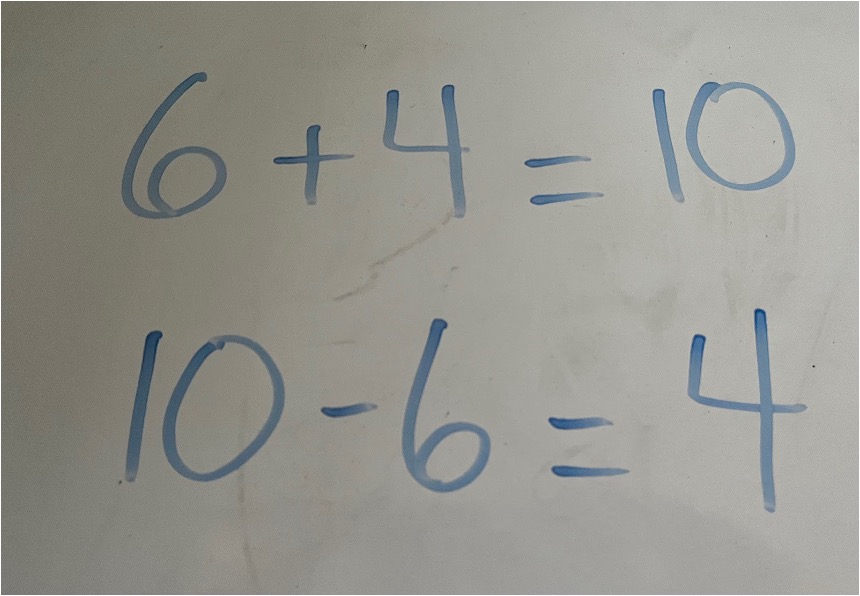 6 + 4 = 10
10 - 6 = 4